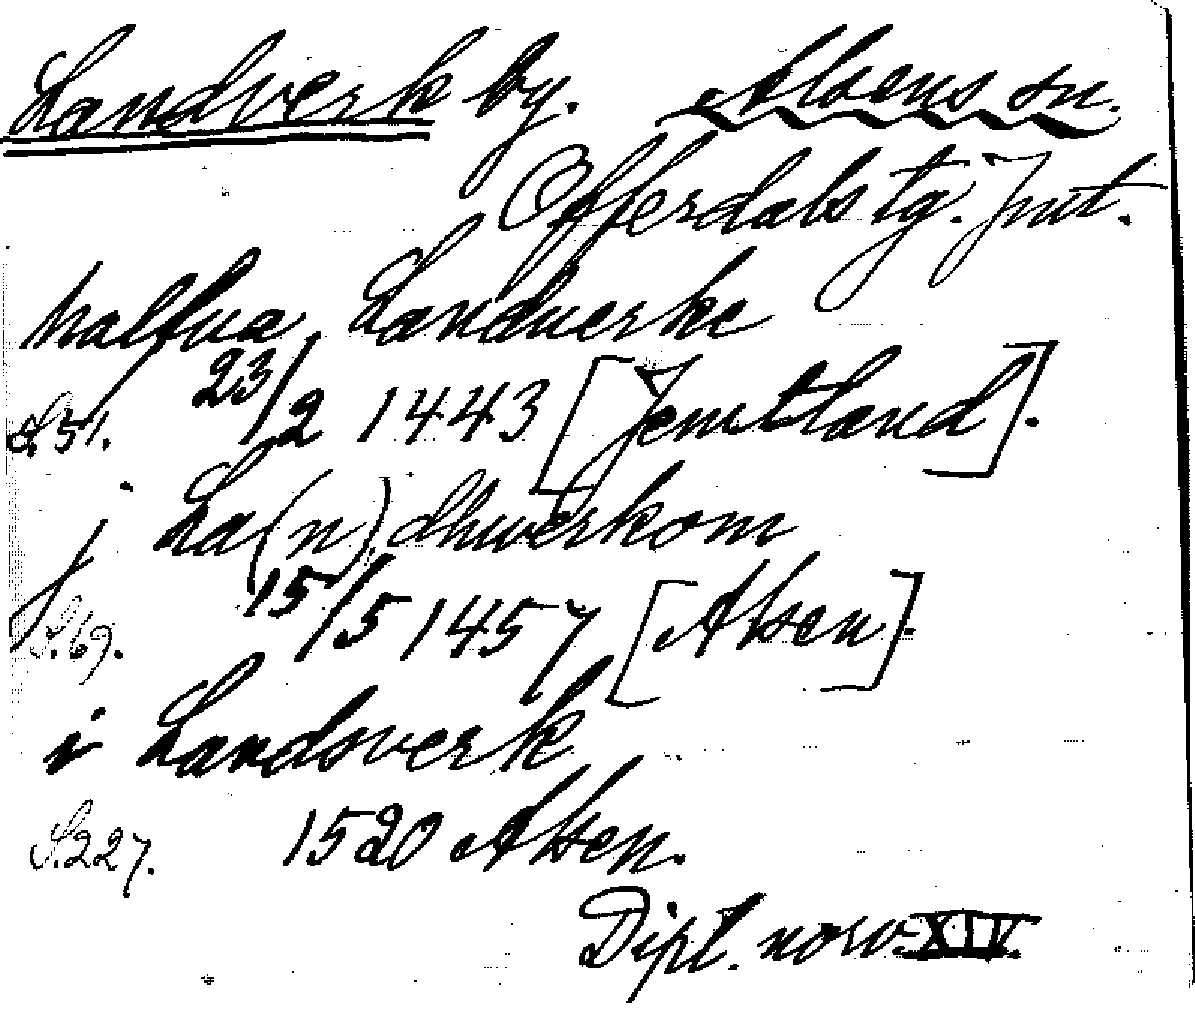 Landverk by. Alsens sn.
Offerdals tg. Jmt.
halfua Landuerke
S. 51. 23/2 1443 [Jemtland].
j La(n)dhwerkom
S. 69. 15/5 1457 [Alsen].
i Landsverk
S. 227. 1520 Alsen.
Dipl. norv. XIV.